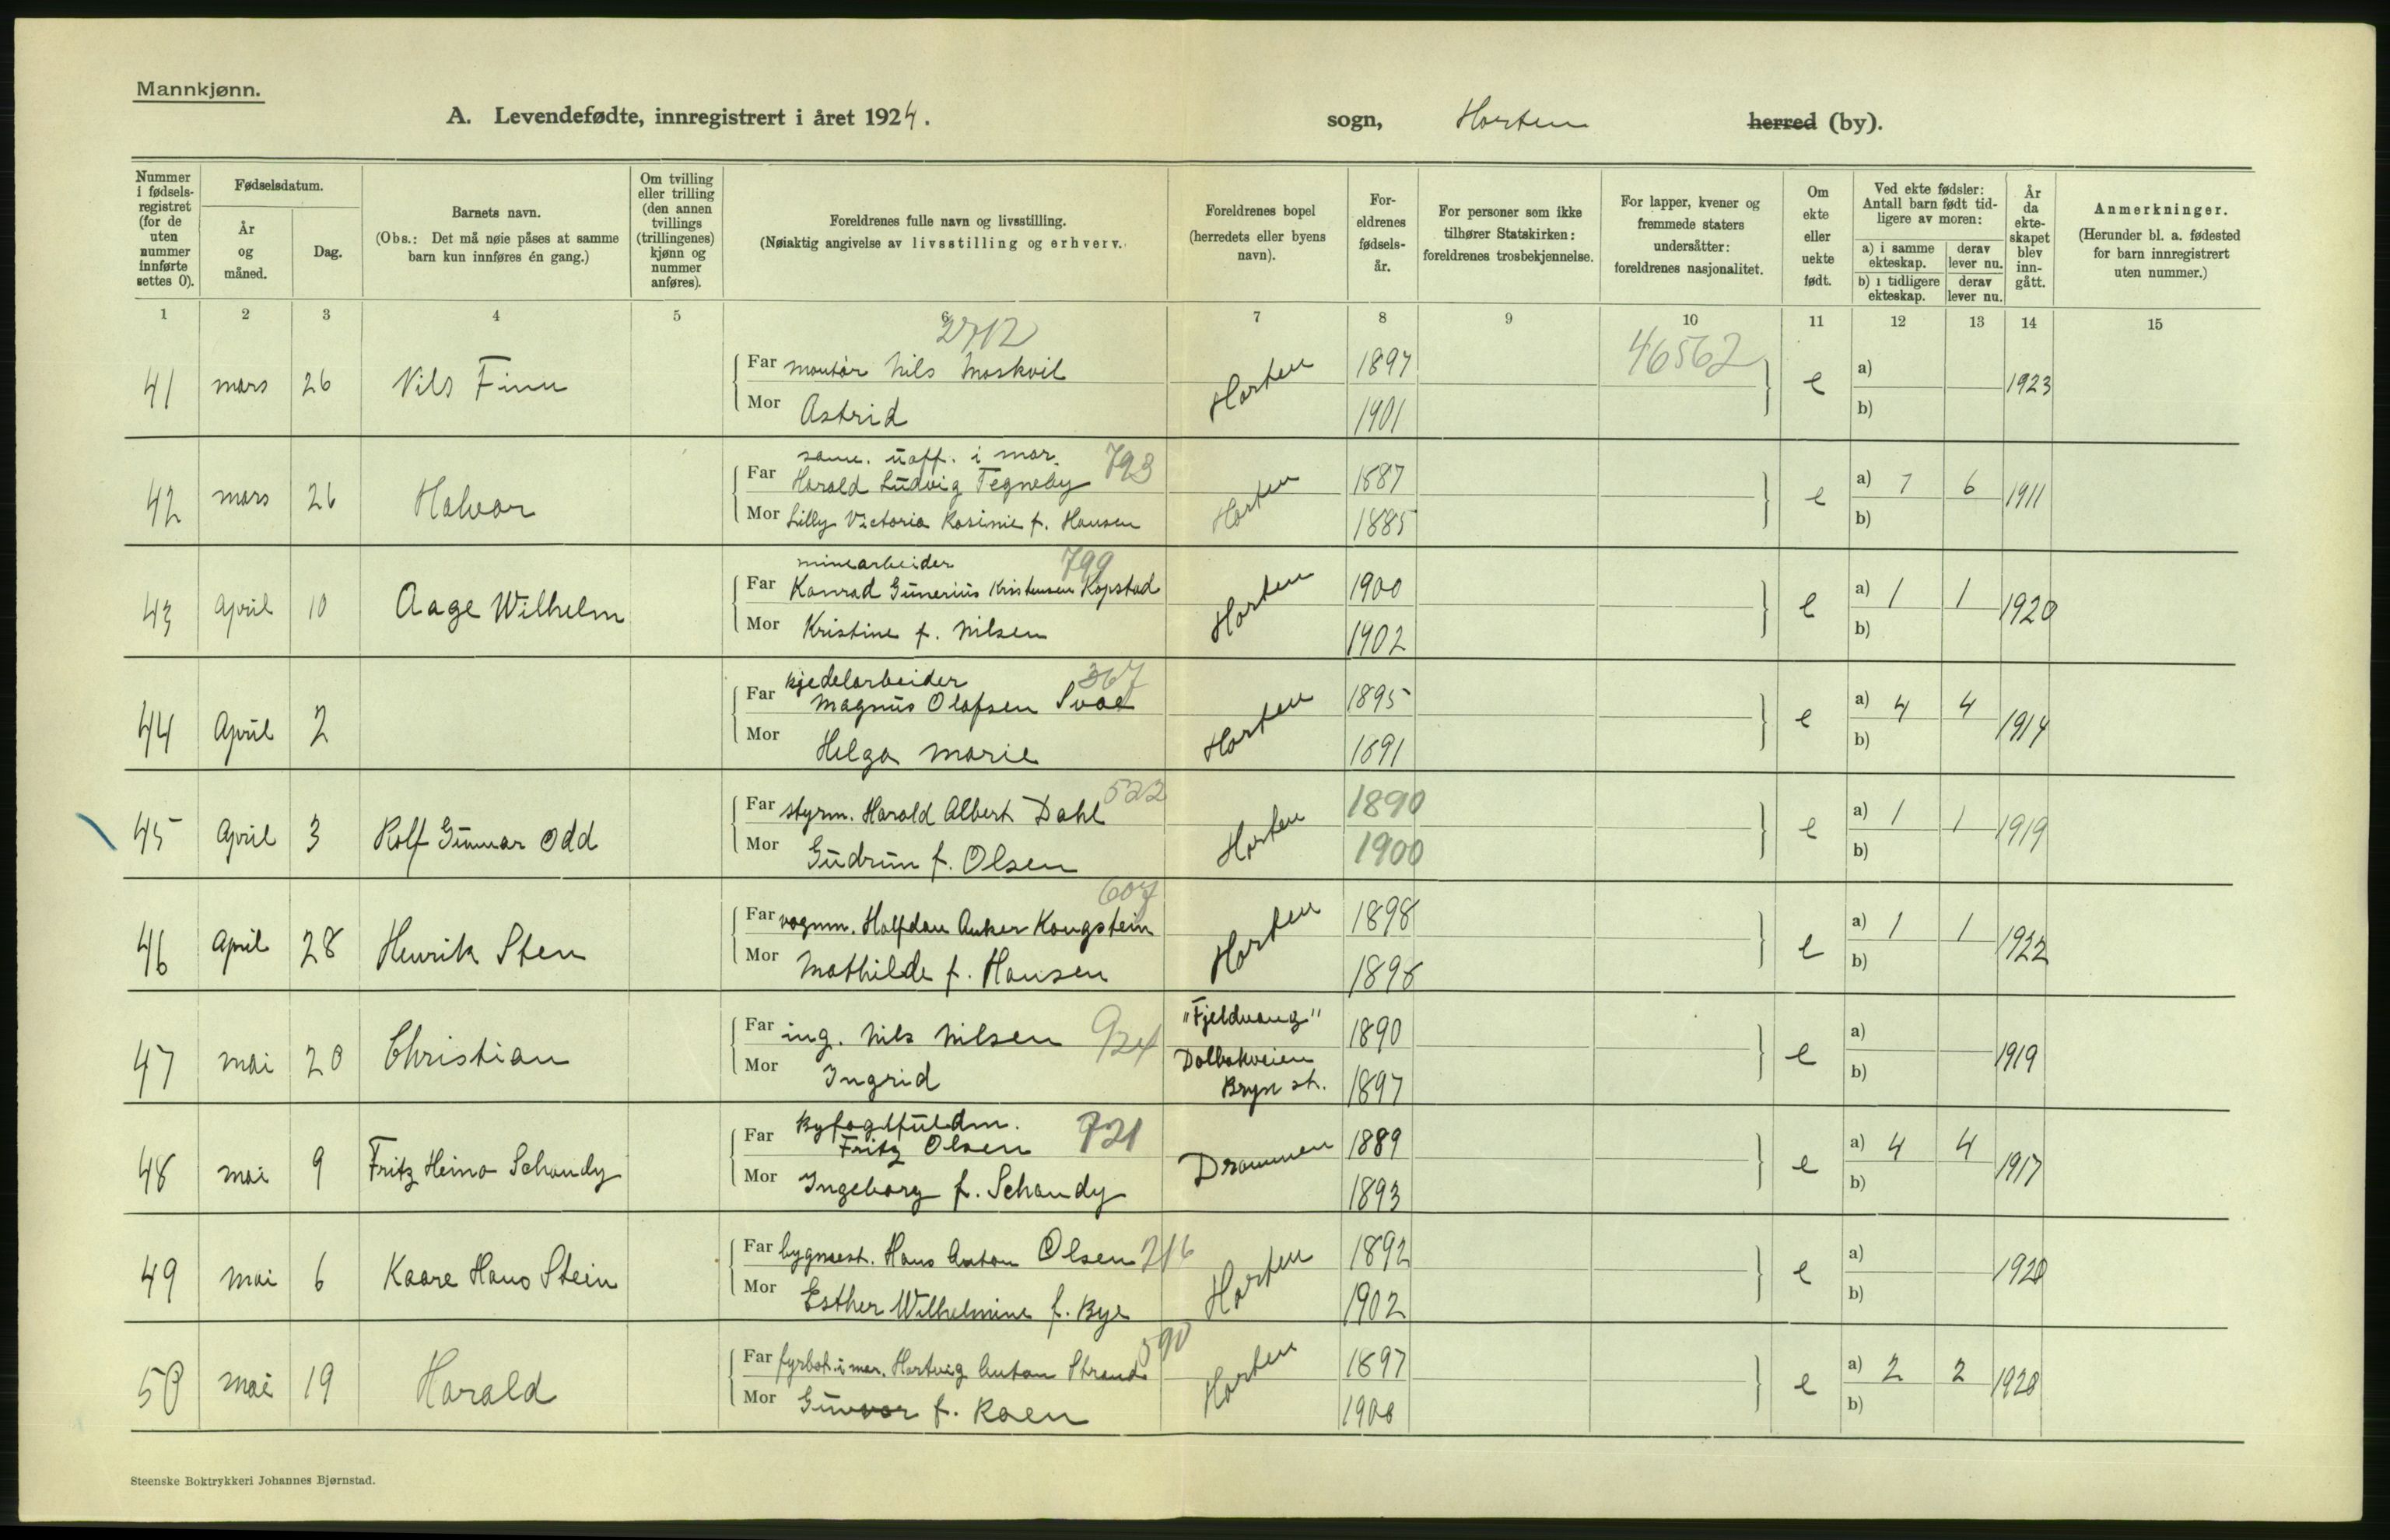 Mannkjønn.
A. Levendefødte, innregistrert i året 1924. sogn, Horten herred (by).
Nummer i fødselsregistret (for de uten nummer innførte settes 0).
Fødselsdatum.
År og måned.
Dag.
Barnets navn.
(Obs.: Det må nøie påses at samme barn kun innføres én gang.)
Om tvilling eller trilling (den annen tvillings (trillingenes) kjønn og nummer anføres).
Foreldrenes fulle navn og livsstilling.
(Nøiaktig angivelse av livsstilling og erhverv.)
Foreldrenes bopel (herredets eller byens navn).
Foreldrenes fødselsår.
For personer som ikke tilhører Statskirken: foreldrenes trosbekjennelse.
For lapper, kvener og fremmede staters undersåtter: foreldrenes nasjonalitet.
Om ekte eller uekte født.
Ved ekte fødsler: Antall barn født tidligere av moren:
a) i samme ekteskap. derav lever nu.
b) i tidligere ekteskap. derav lever nu.
År da ekteskapet blev inngått.
Anmerkninger.
(Herunder bl. a. fødested for barn innregistrert uten nummer.)
1 2 3 4 5 6 7 8 9 10 11 12 13 14 15
2712 46562
41 mars 26 Nils Finn Far montør Nils Moskvil Horten 1897 e a) 1923
Mor Astrid 1901 b)
i mar. 793
42 mars 26 Halvor Far Harald Ludvig Tegneby Horten 1887 e a) 7 6 1911
Mor Lilly Victoria f. Hansen 1885 b)
minearbeider 799
43 April 10 Aage Wilhelm Far Konrad Gunerius Kristensen Kopstad Horten 1900 e a) 1 1 1920
Mor Kristine f. Nilsen 1902 b)
kjedelarbeider 367
44 April 2 Far Magnus Olafsen Svae Horten 1895 e a) 4 4 1914
Mor Helga Marie 1891 b)
522
45 April 3 Rolf Gunnar Odd Far styrm. Harald Albert Dahl Horten 1890 e a) 1 1 1919
Mor Gudrun f. Olsen 1900 b)
607
46 April 28 Henrik Sten Far vognm. Halfdan Anker Kongstein Horten 1898 e a) 1 1 1922
Mor Mathilde f. Hansen 1898 b)
47 mai 20 Christian Far ing. Nils Nilsen 924 "Fjeldvang" 1890 e a) 1919
Mor Ingrid Dalbakveien Bryn st. 1897 b)
Byfogdfuldm. 721
48 mai 9 Fritz Heino Schandy Far Fritz Olsen Drammen 1889 e a) 4 4 1917
Mor Ingeborg f. Schandy 1893 b)
49 mai 6 Kaare Hans Stein Far bygmest. Hans Anton Olsen 216 Horten 1892 e a) 1920
Mor Esther Wilhelmine f. Bye 1902 b)
590
50 mai 19 Harald Far fyrbøt. i mar. Hartvig Anton Strand Horten 1897 e a) 2 2 1920
Mor Gunvor f. Roen 1900 b)
Steenske Boktrykkeri Johannes Bjørnstad.